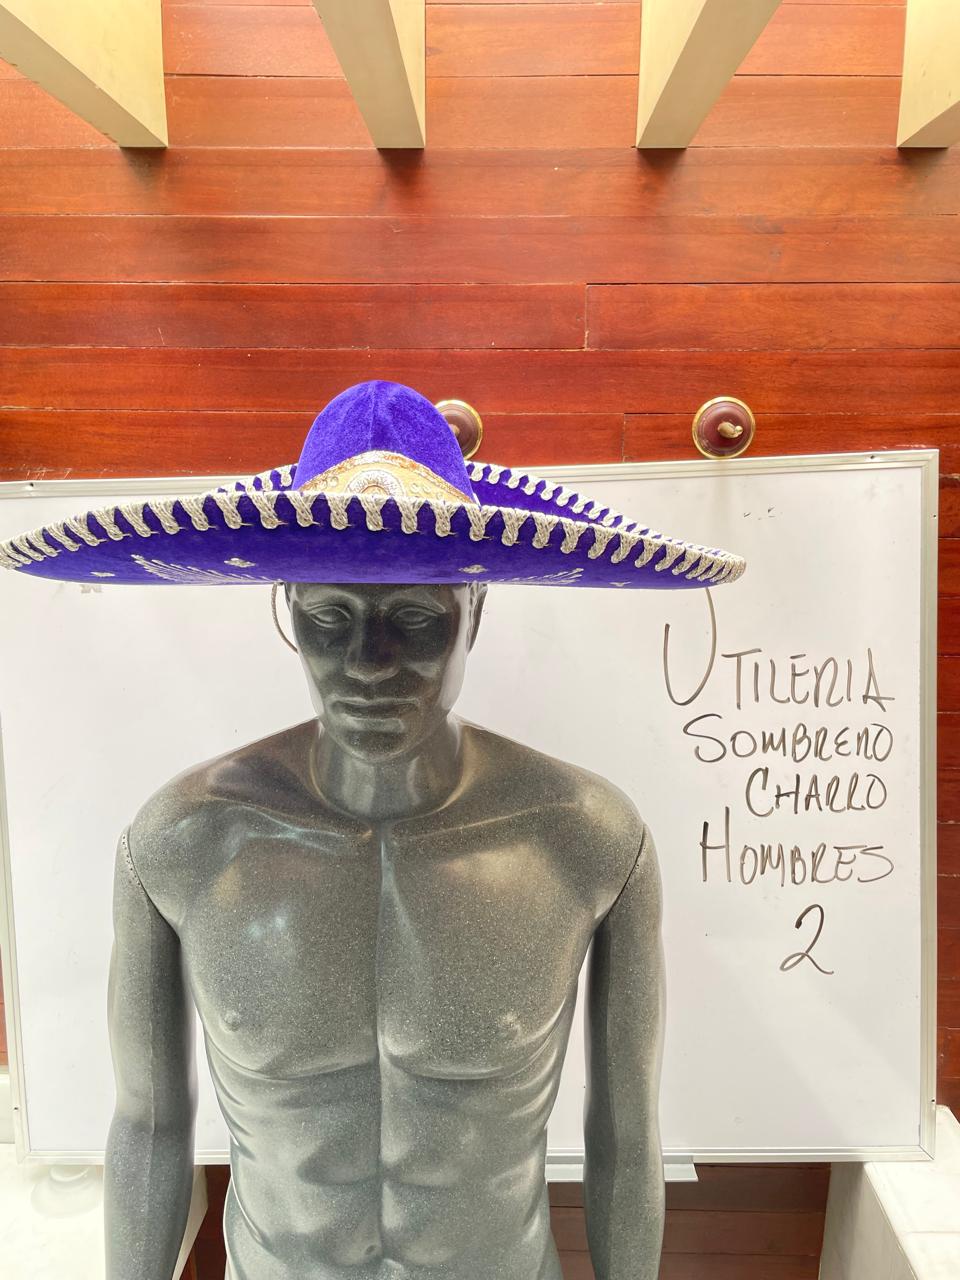 UTILERIA
SOMBRERO
CHARRO
HOMBRES
2